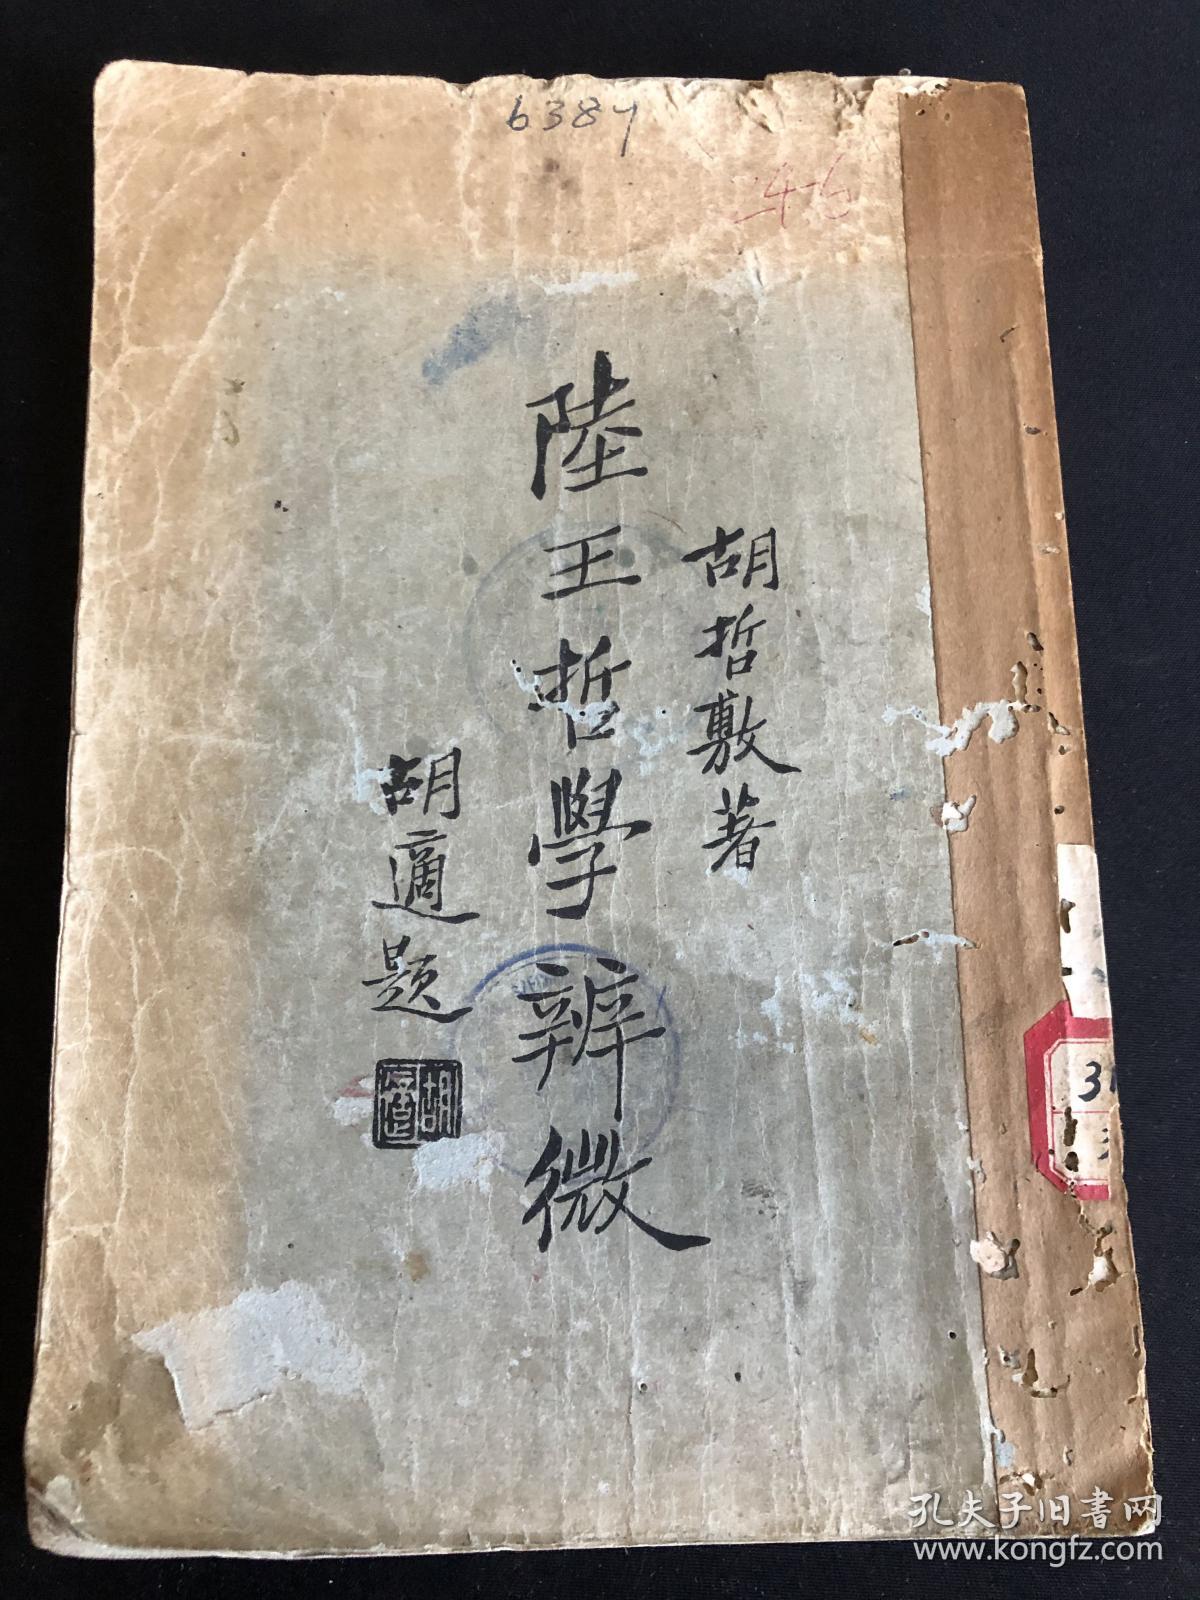 6384
46
胡哲敷著
陸王哲學辨微
胡適題
孔夫子旧書网
www.kongfz.com